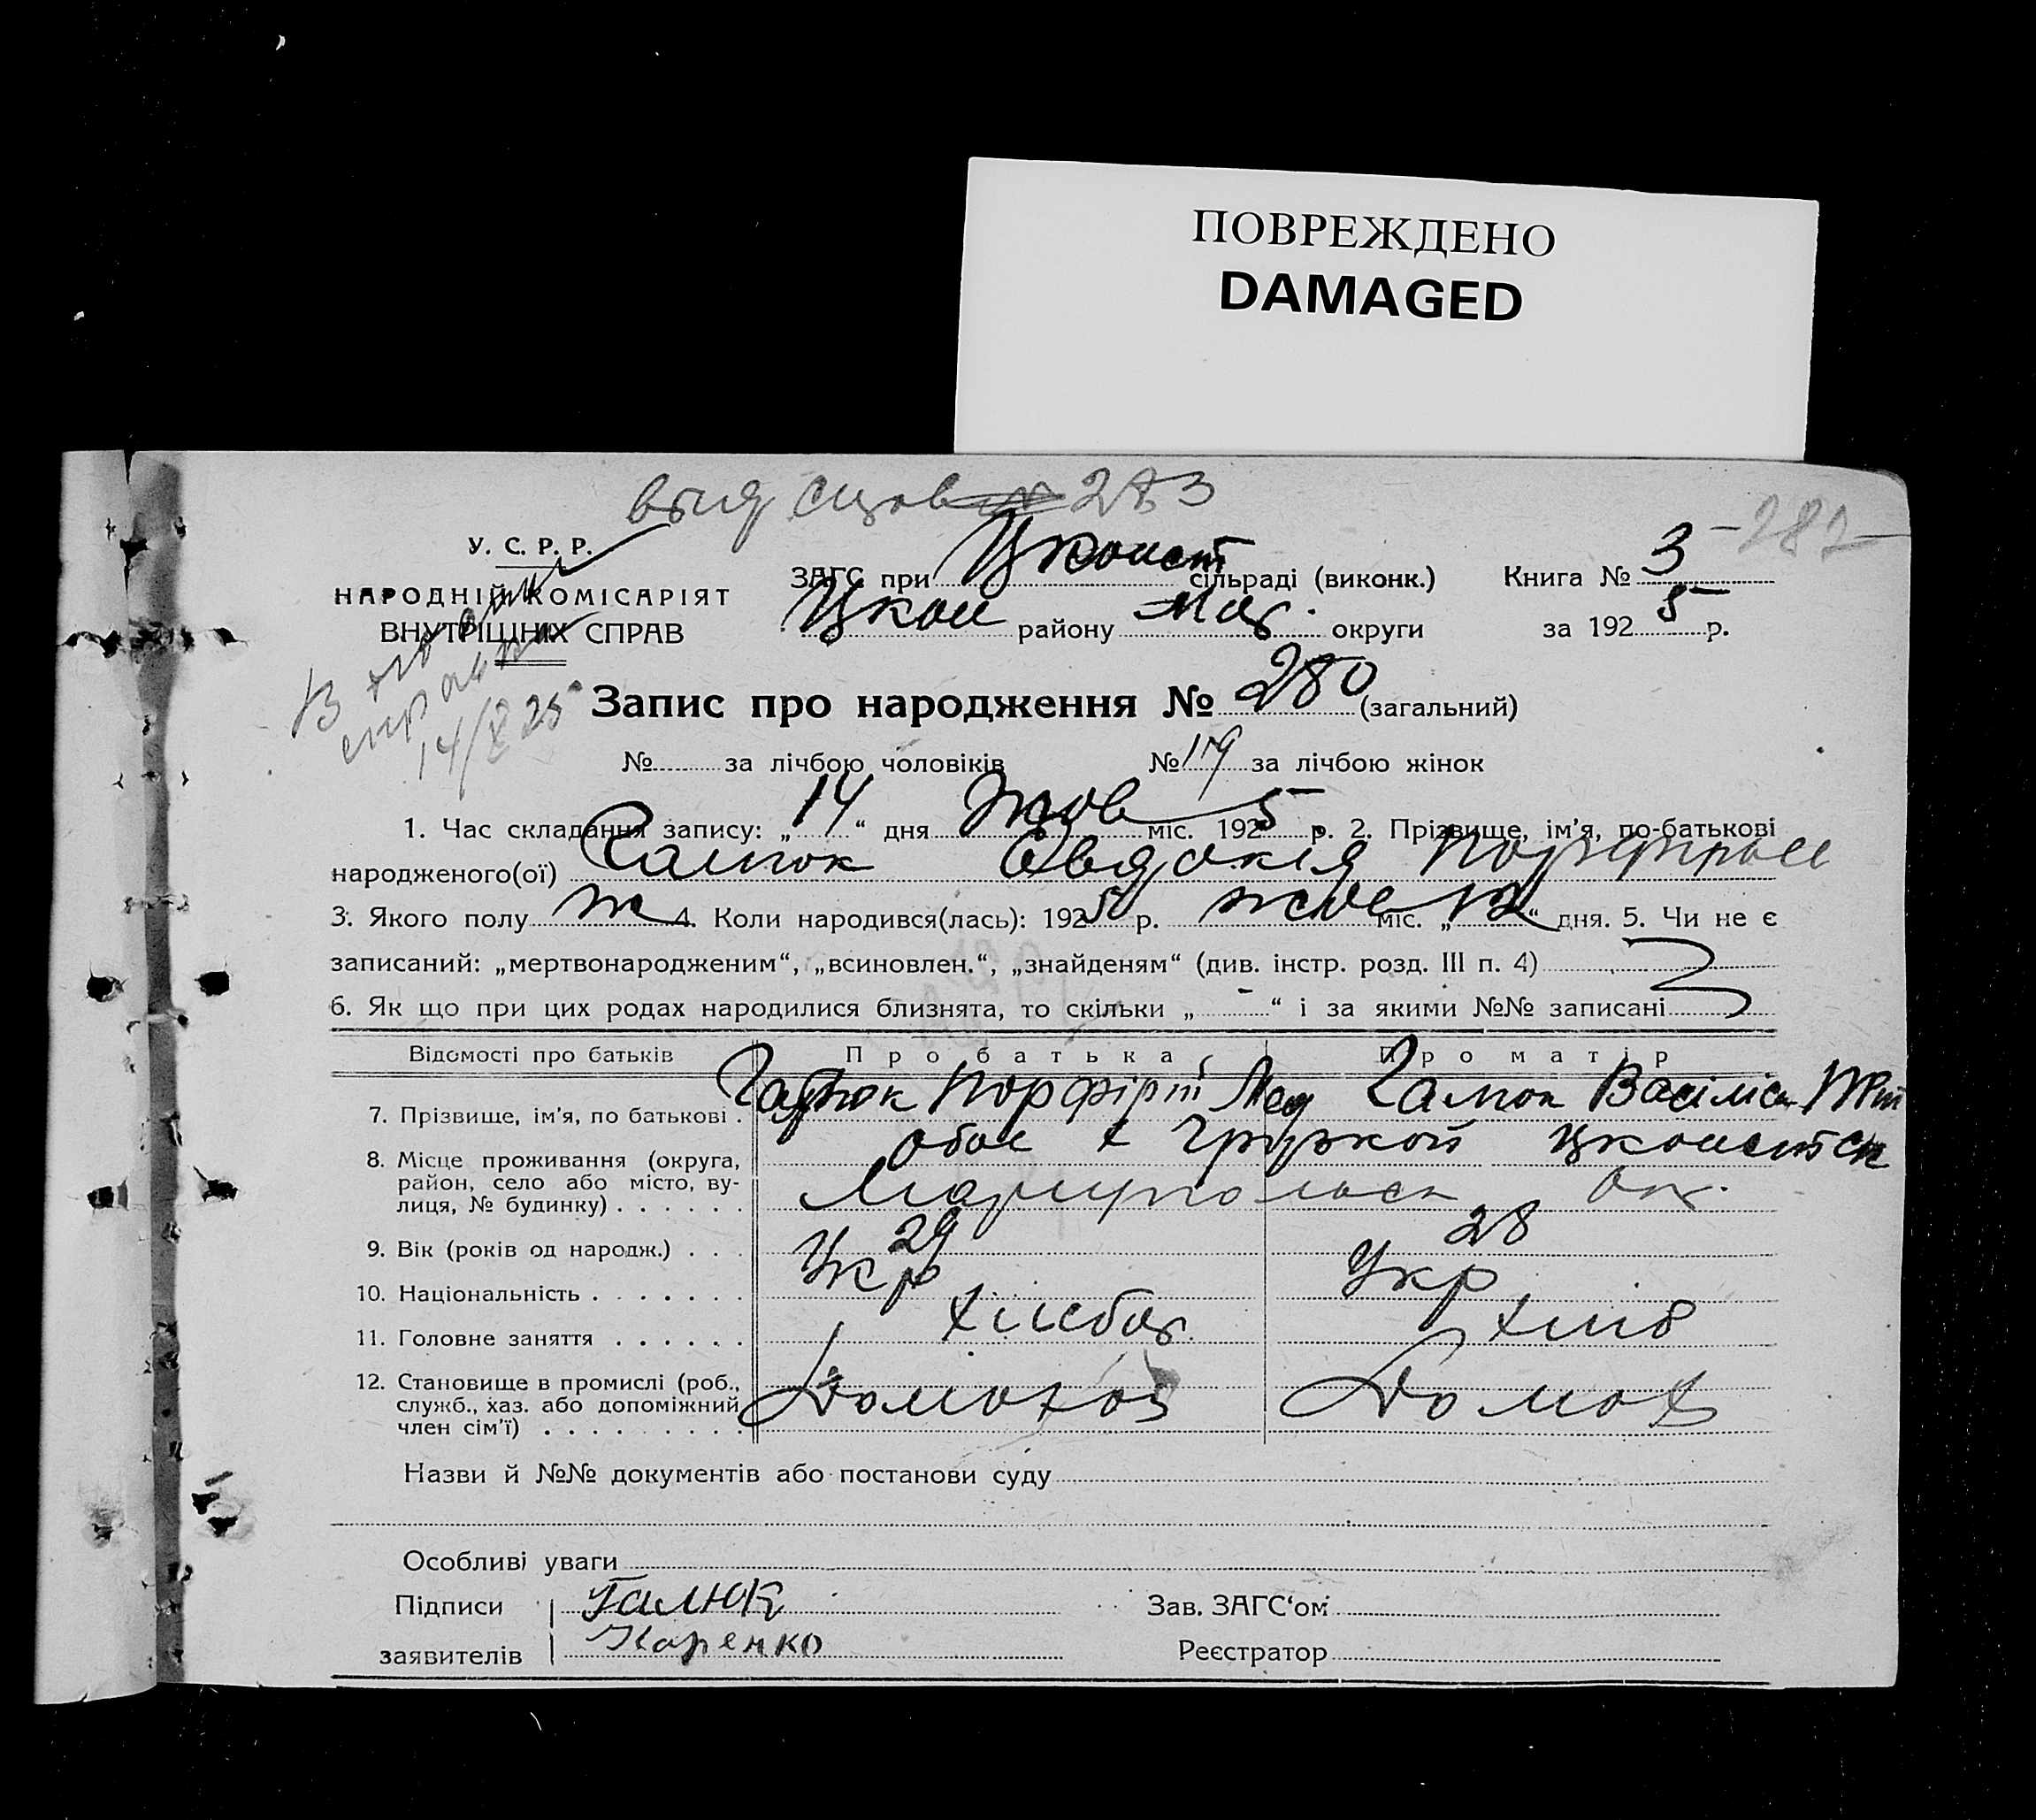 ПОВРЕЖДЕНО
DAMAGED
283
-282-
У. С. Р. Р.
НАРОДНІЙ КОМІСАРІЯТ
ВНУТРІШНІХ СПРАВ
14/X 25
ЗАГС при Цконст сільраді (виконк.) Книга № 3
Цкон району Мар. округи за 1925 р.
Запис про народження № 280 (загальний)
№ за лічбою чоловіків № 119 за лічбою жінок
1. Час складання запису: „14“ дня Жов міс. 1925 р. 2. Прізвище, ім'я, по-батькові
народженого(ої) Галюк Євдокія
3. Якого полу ж 4. Коли народився(лась): 1925 р. жов міс. „12“ дня. 5. Чи не є
записаний: „мертвонародженим“, „всиновлен.“, „знайденям“ (див. інстр. розд. III п. 4)
6. Як що при цих родах народилися близнята, то скільки „-“ і за якими №№ записані
Відомості про батьків Про батька Про матір
7. Прізвище, ім'я, по батькові . Галюк Порфірій Мед Галюк Васіліса
8. Місце проживання (округа, обоє х Грузкой Цконстск
район, село або місто, ву-
лиця, № будинку) . . . . . . Маріупольск Ок.
9. Вік (років од народж.) . . . 29 28
10. Національність . . . . . . . Укр Укр
11. Головне заняття . . . . . . хлібор. хліб
12. Становище в промислі (роб.,
служб., хаз. або допоміжний Домохоз Домох
член сім'ї) . . . . . . . . .
Назви й №№ документів або постанови суду
Особливі уваги
Підписи Галюк Зав. ЗАГС'ом
заявителів Каренко Реєстратор